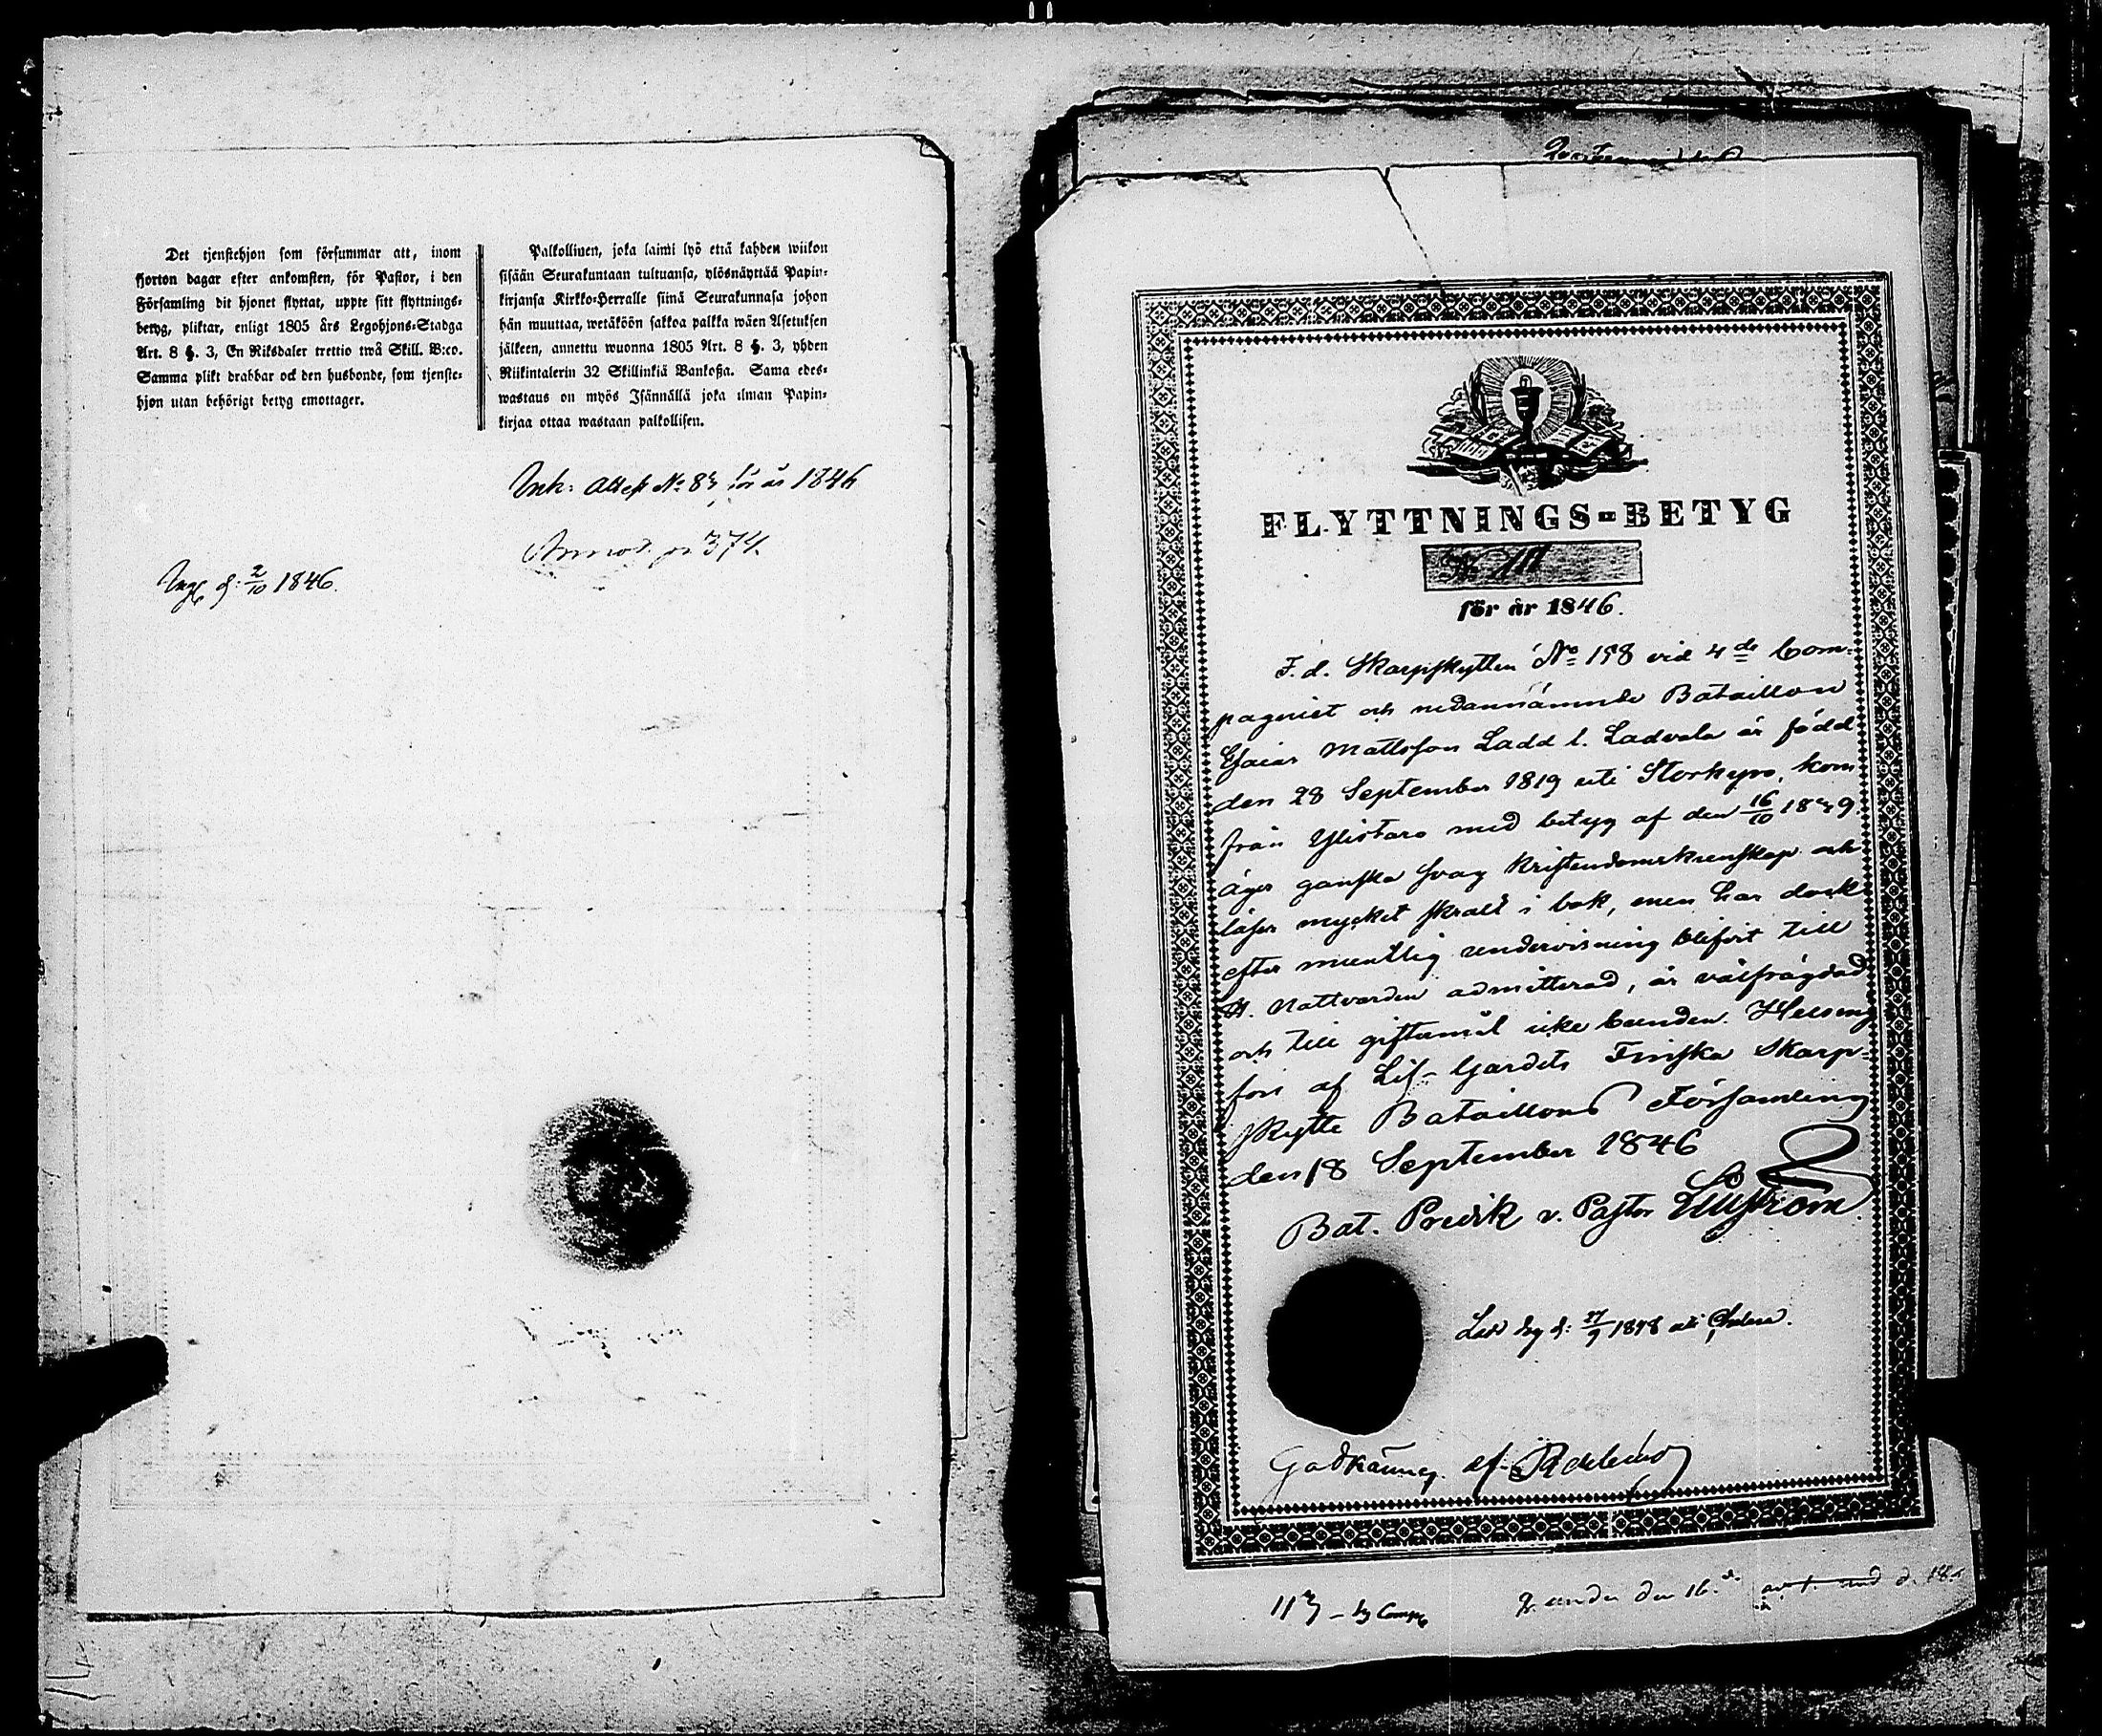 Det tjenstehjon som försummar att, inom
fjorton dagar efter ankomsten, för Pastor, i den
Församling dit hjonet flyttat, uppte sitt flyttnings-
betyg, pliktar, enligt 1805 års Legohjons-Stadga
Art. 8 §. 3, En Riksdaler trettio twå Skill. B:co.
Samma plikt drabbar ock den husbonde, som tjenste-
hjon utan behörigt betyg emottager.
Palkollinen, joka laimi lyö että kahden wiikon
sisään Seurakuntaan tultuansa, ylösnäyttää Papin-
kirjansa Kirkko-Herralle siinä Seurakunnasa johon
hän muuttaa, wetäköön sakkoa palkka wäen Asetuksen
jälkeen, annettu wuonna 1805 Art. 8 §. 3, yhden
Riikintalerin 32 Skillinkiä Bankoßa. Sama edes-
wastaus on myös Isännällä joka ilman Papin-
kirjaa ottaa wastaan palkollisen.
Ink: Attest No 83 för år 1846
Annot. p. 374.
d: 2/10 1846.
FLYTTNINGS-BETYG
No 111
för år 1846.
F. d. Skarpskytten No 158 vid 4de Com-
pagniet och nedannämnde Bataillon
Esaias Mattsson Ladd l. Ladvala är född
den 28 September 1819 uti Storkyro, kom
från Ylistaro med betyg af den 16/10 1839.
äger ganska svag Kristendomskunskap och
läser mycket skralt i bok, men har dock
efter muntlig undervisning blifvit till
H. Nattvarden admitterad, är välfrägdad
och till giftermål icke bunden. Helsing
fors af Lif-Gardets Finska Skarp-
skytte Bataillons Församling
den 18 September 1846
Bat. Predik v. Pastor
1848
Godkännes af
113
under den 16.de